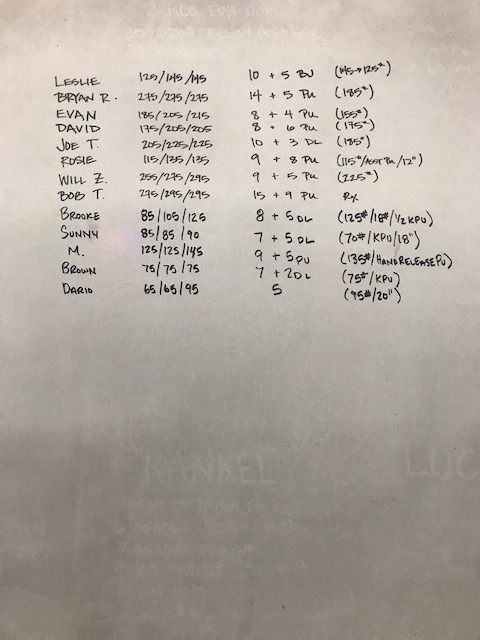 LESLIE 125/145/145 10 + 5 BU (145→125#)
BRYAN R. 275/275/275 14 + 5 PU (185#)
EVAN 185/205/215 8 + 4 PU (155#)
DAVID 175/205/205 8 + 6 PU (175#)
JOE T. 205/225/225 10 + 3 DL (185#)
ROSIE 115/135/135 9 + 8 PU (115#/ASST PU/12")
WILL Z. 255/275/295 9 + 5 PU (225#)
BOB T. 275/295/295 15 + 9 PU Rx
BROOKE 85/105/125 8 + 5 DL (125#/18#/1/2 KPU)
SUNNY 85/85/90 7 + 5 DL (70#/KPU/18")
M. 125/125/145 9 + 5 PU (135#/HAND RELEASE PU)
BROWN 75/75/75 7 + 2 DL (75#/KPU)
DARIO 65/65/95 5 (95#/20")
"RANKEL"
LUC